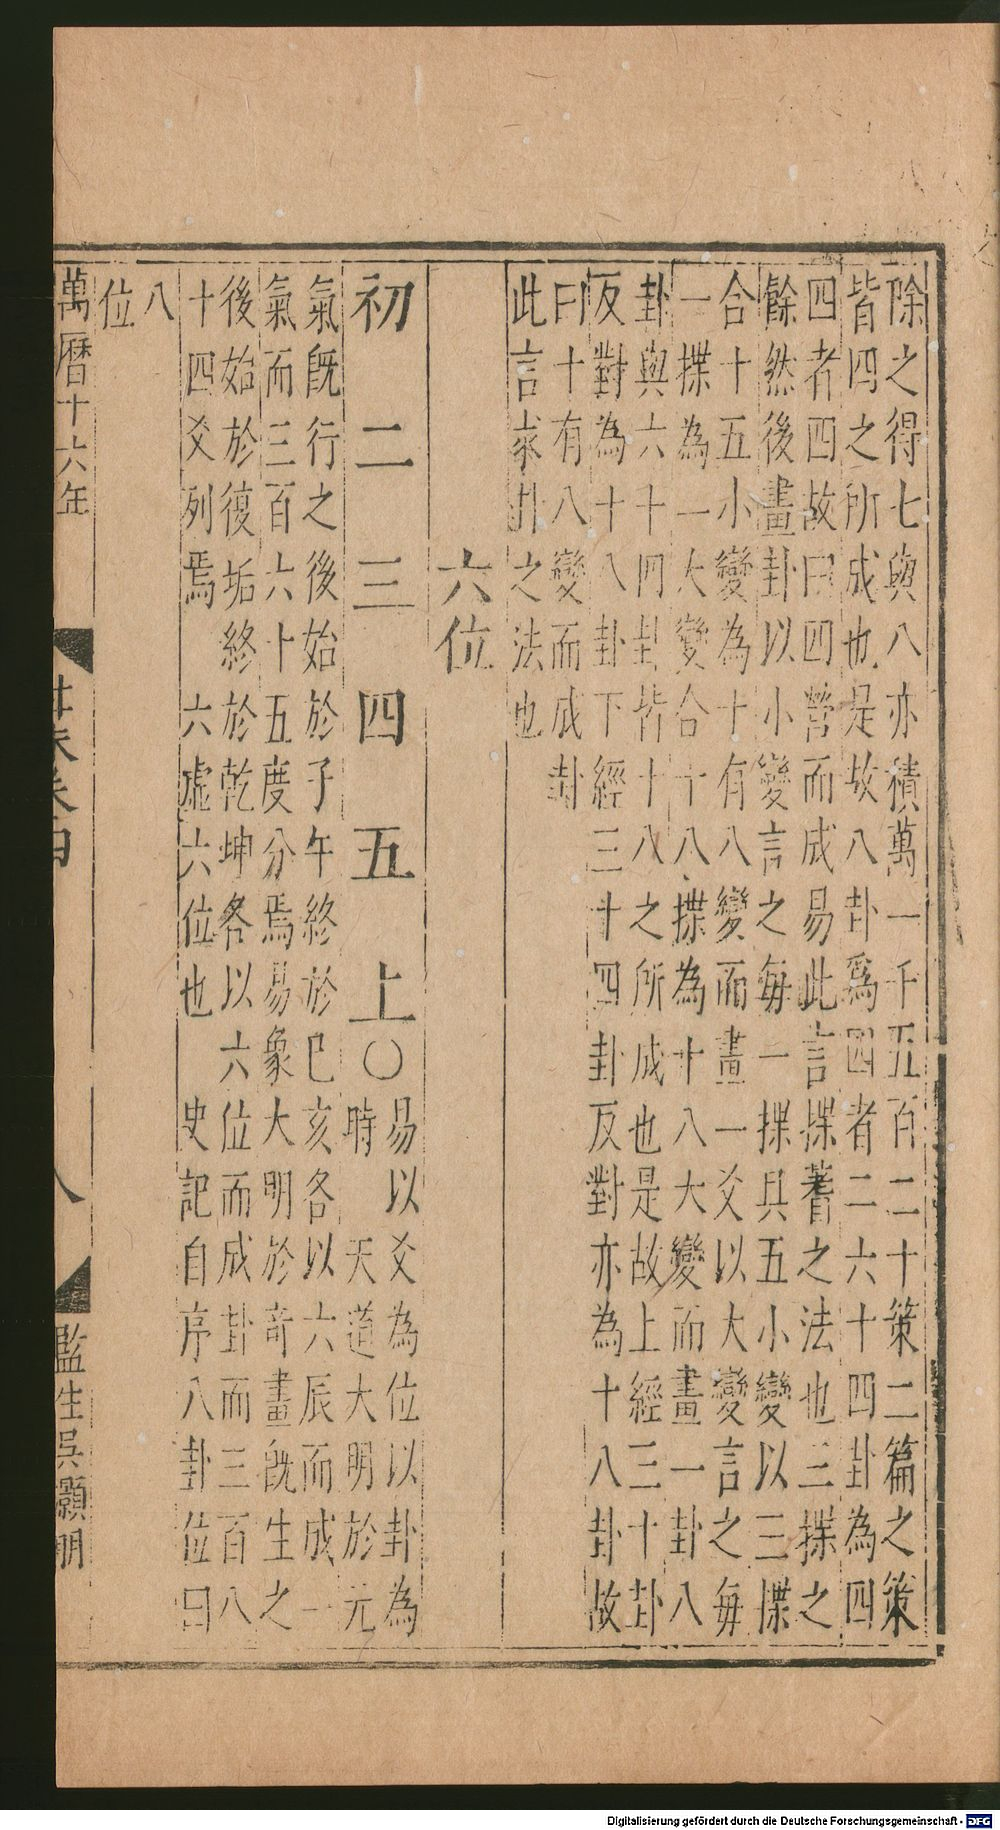 除之得七與八亦積萬一千五百二十策二篇之策
皆四之所成也是故八卦爲四者二六十四卦為四
四者四故曰四營而成易此言揲蓍之法也三揲之
餘然後畫卦以小變言之每一揲具五小變以三揲
合十五小變為十有八變而畫一爻以大變言之每
一揲為一大變合十八揲為十八大變而畫一卦八
卦與六十四卦皆十八之所成也是故上經三十卦
反對為十八卦下經三十四卦反對亦為十八卦故
曰十有八變而成卦
此言求卦之法也
六位
初二三四五上○易以爻為位以卦為
時天道大明於元
氣既行之後始於子午終於巳亥各以六辰而成一
氣而三百六十五度分焉易象大明於奇畫既生之
後始於復垢終於乾坤各以六位而成卦而三百八
十四爻列焉 六虛六位也 史記自序八卦位曰
八
位
萬曆十六年
卷四
八
監生吳顥明
Digitalisierung gefördert durch die Deutsche Forschungsgemeinschaft - DFG